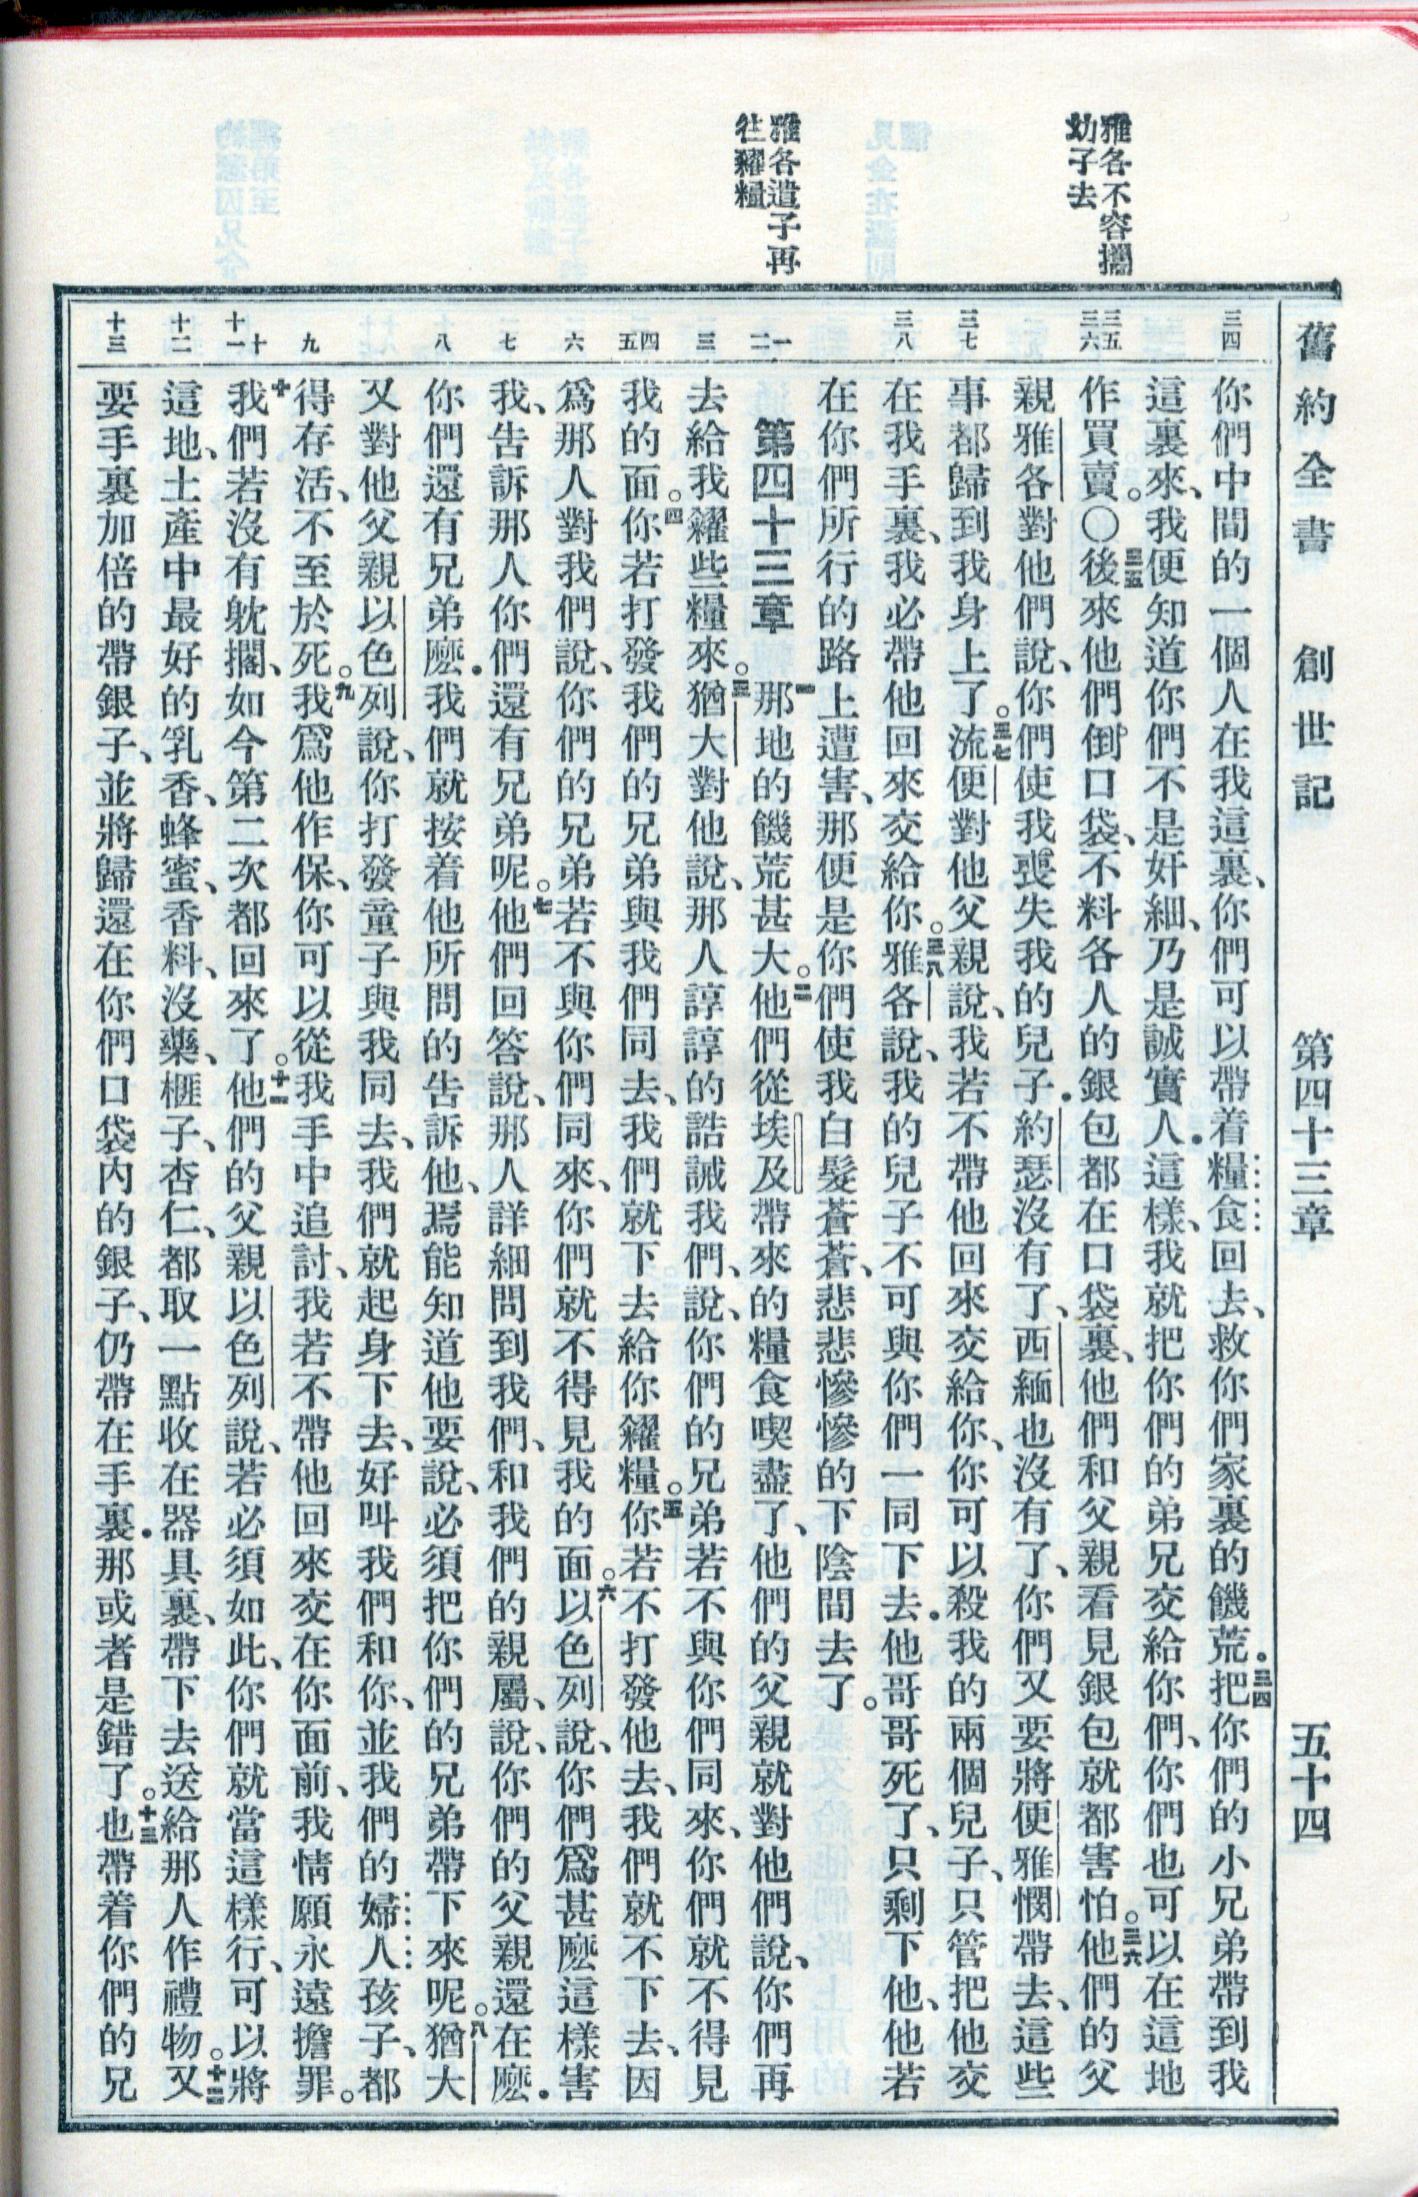 舊約全書 創世記 第四十三章 五十四
雅各不容攜
幼子去
雅各遣子再
往糴糧
三四
三五
三六
三七
三八
一
二
三
四
五
六
七
八
九
十
十一
十二
十三
你們中間的一個人在我這裏、你們可以帶着糧食回去、救你們家裏的饑荒.三四把你們的小兄弟帶到我
這裏來、我便知道你們不是奸細、乃是誠實人.這樣、我就把你們的弟兄交給你們、你們也可以在這地
作買賣。〇三五後來他們倒口袋、不料各人的銀包都在口袋裏、他們和父親看見銀包就都害怕。三六他們的父
親雅各對他們說、你們使我喪失我的兒子.約瑟沒有了、西緬也沒有了、你們又要將便雅憫帶去、這些
事都歸到我身上了。三七流便對他父親說、我若不帶他回來交給你、你可以殺我的兩個兒子、只管把他交
在我手裏、我必帶他回來交給你。三八雅各說、我的兒子不可與你們一同下去.他哥哥死了、只剩下他、他若
在你們所行的路上遭害、那便是你們使我白髮蒼蒼、悲悲慘慘的下陰間去了。
第四十三章 一那地的饑荒甚大。二他們從埃及帶來的糧食喫盡了、他們的父親就對他們說、你們再
去給我糴些糧來。三猶大對他說、那人諄諄的誥誡我們、說、你們的兄弟若不與你們同來、你們就不得見
我的面。四你若打發我們的兄弟與我們同去、我們就下去給你糴糧。五你若不打發他去、我們就不下去、因
爲那人對我們說、你們的兄弟若不與你們同來、你們就不得見我的面。六以色列說、你們爲甚麽這樣害
我、告訴那人你們還有兄弟呢。七他們回答說、那人詳細問到我們、和我們的親屬、說、你們的父親還在麽.
你們還有兄弟麽.我們就按着他所問的告訴他、焉能知道他要說、必須把你們的兄弟帶下來呢。八猶大
又對他父親以色列說、你打發童子與我同去、我們就起身下去、好叫我們和你、並我們的婦人孩子、都
得存活、不至於死。九我爲他作保、你可以從我手中追討、我若不帶他回來交在你面前、我情願永遠擔罪。
十我們若沒有躭擱、如今第二次都回來了。十一他們的父親以色列說、若必須如此、你們就當這樣行、可以將
這地、土產中最好的乳香、蜂蜜、香料、沒藥、榧子、杏仁、都取一點收在器具裏、帶下去送給那人作禮物。十二又
要手裏加倍的帶銀子、並將歸還在你們口袋內的銀子、仍帶在手裏.那或者是錯了。十三也帶着你們的兄